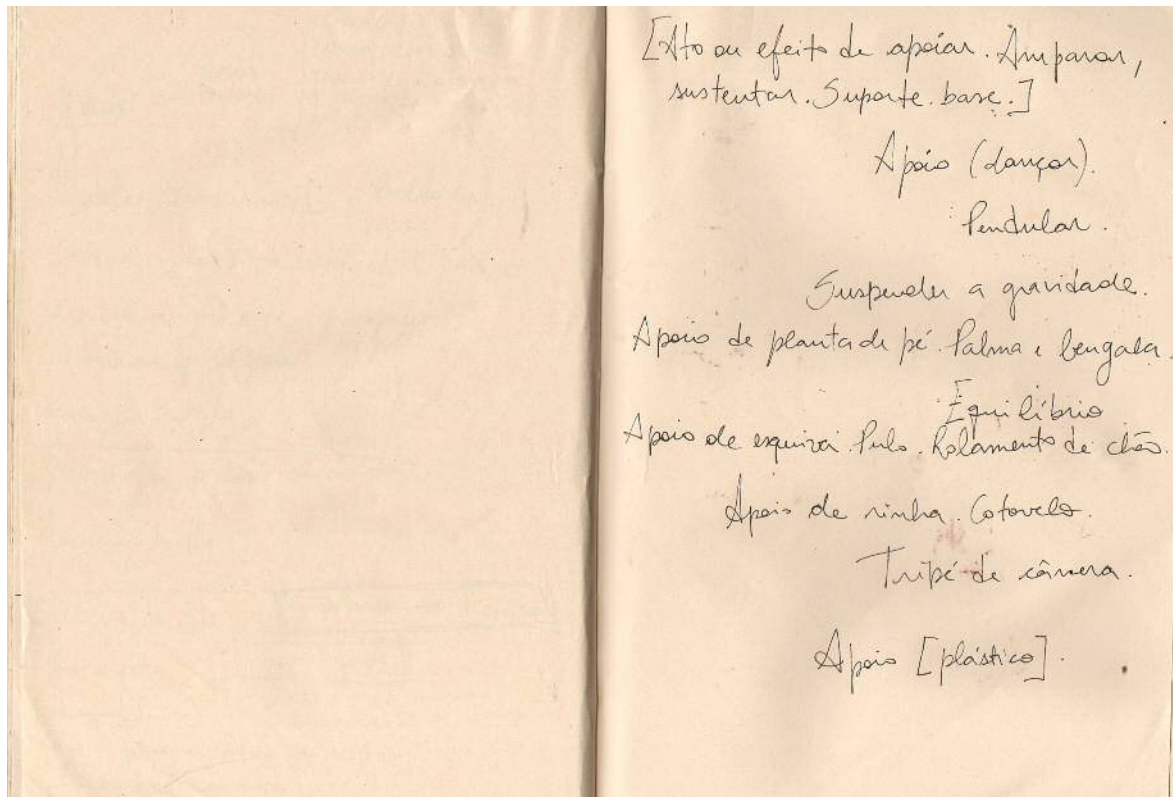 [Ato ou efeito de apoiar. Amparar,
sustentar. Suporte. base.]
Apoio (dançar).
Pendular.
Suspender a gravidade.
Apoio de planta de pé. Palma e bengala.
Equilíbrio
Apoio de esquiva. Pulo. Rolamento de chão.
Apoio de rinha. Cotovelo.
Tripé de câmera.
Apoio [plástico].